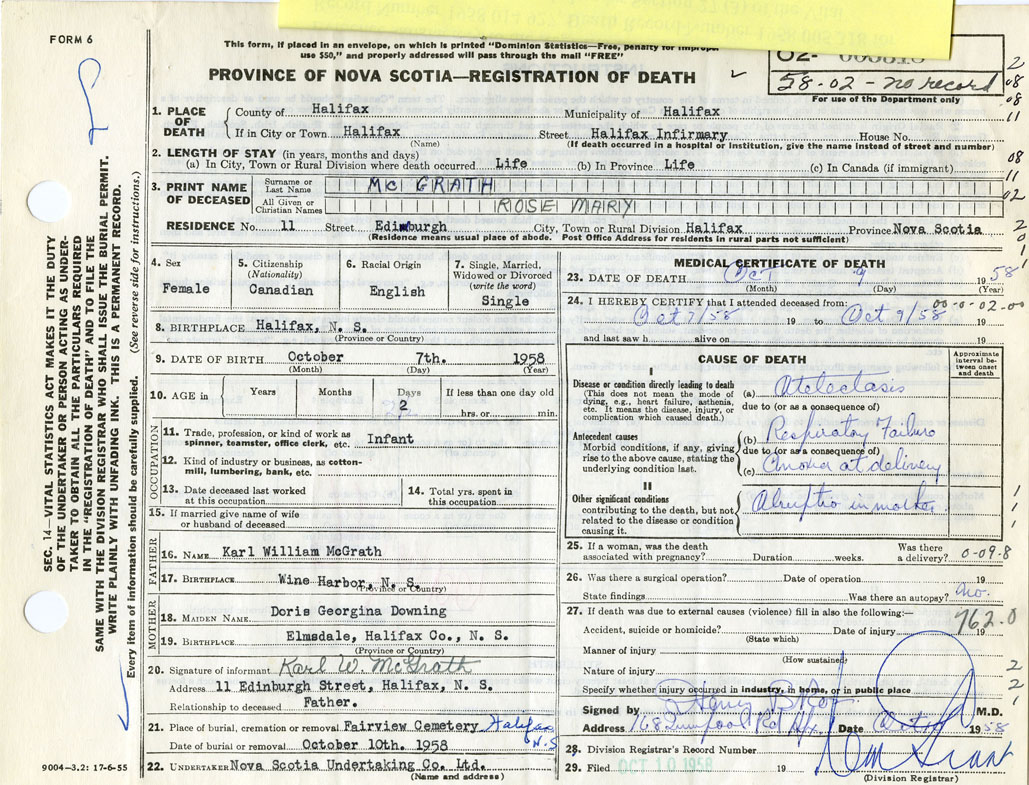 FORM 6
This form, if placed in an envelope, on which is printed "Dominion Statistics—Free, penalty for improper
use $50," and properly addressed will pass through the mail "FREE"
PROVINCE OF NOVA SCOTIA—REGISTRATION OF DEATH
02-
58-02 - no record
For use of the Department only
1. PLACE OF DEATH
County of Halifax Municipality of Halifax
If in City or Town Halifax Street Halifax Infirmary House No.
(Name) (If death occurred in a hospital or institution, give the name instead of street and number)
2. LENGTH OF STAY (in years, months and days)
(a) In City, Town or Rural Division where death occurred Life (b) In Province Life (c) In Canada (if immigrant)
3. PRINT NAME OF DECEASED
Surname or Last Name MCGRATH
All Given or Christian Names ROSE MARY
RESIDENCE No. 11 Street Edinburgh City, Town or Rural Division Halifax Province Nova Scotia
(Residence means usual place of abode. Post Office Address for residents in rural parts not sufficient)
4. Sex
Female
5. Citizenship
(Nationality)
Canadian
6. Racial Origin
English
7. Single, Married,
Widowed or Divorced
(write the word)
Single
8. BIRTHPLACE Halifax, N. S.
(Province or Country)
9. DATE OF BIRTH October 7th. 1958
(Month) (Day) (Year)
10. AGE in Years Months Days If less than one day old
2 hrs. or min.
OCCUPATION
11. Trade, profession, or kind of work as
spinner, teamster, office clerk, etc. Infant
12. Kind of industry or business, as cotton-
mill, lumbering, bank, etc.
13. Date deceased last worked
at this occupation
14. Total yrs. spent in
this occupation
15. If married give name of wife
or husband of deceased
FATHER
16. NAME Karl William McGrath
17. BIRTHPLACE Wine Harbor, N. S.
(Province or Country)
MOTHER
18. MAIDEN NAME Doris Georgina Downing
19. BIRTHPLACE Elmsdale, Halifax Co., N. S.
(Province or Country)
20. Signature of informant Karl W. McGrath
Address 11 Edinburgh Street, Halifax, N. S.
Relationship to deceased Father.
21. Place of burial, cremation or removal Fairview Cemetery Halifax
N.S
Date of burial or removal October 10th. 1958
22. UNDERTAKER Nova Scotia Undertaking Co. Ltd.
(Name and address)
MEDICAL CERTIFICATE OF DEATH
23. DATE OF DEATH Oct 9 1958
(Month) (Day) (Year)
24. I HEREBY CERTIFY that I attended deceased from: 00-0-02-00
Oct 7/58 19 to Oct 9/58 19
and last saw h alive on 19
CAUSE OF DEATH
Approximate
interval be-
tween onset
and death
I
Disease or condition directly leading to death
(This does not mean the mode of
dying, e.g., heart failure, asthenia,
etc. It means the disease, injury, or
complication which caused death.)
(a) Atelectasis
due to (or as a consequence of)
Antecedent causes
Morbid conditions, if any, giving
rise to the above cause, stating the
underlying condition last.
(b) Respiratory Failure
due to (or as a consequence of)
(c) Anoxia at delivery
II
Other significant conditions
contributing to the death, but not
related to the disease or condition
causing it.
Abruptio in mother
25. If a woman, was the death
associated with pregnancy? Duration weeks.
Was there
a delivery? 0-09-8
26. Was there a surgical operation? Date of operation 19
State findings Was there an autopsy? no.
27. If death was due to external causes (violence) fill in also the following:—
762.0
Accident, suicide or homicide? Date of injury 19
(State which)
Manner of injury
(How sustained)
Nature of injury
Specify whether injury occurred in industry, in home, or in public place
Signed by Henry M.D.
Address 168 Date Oct 1958
28. Division Registrar's Record Number
29. Filed OCT 10 1958 19
(Division Registrar)
SEC. 14—VITAL STATISTICS ACT MAKES IT THE DUTY
OF THE UNDERTAKER OR PERSON ACTING AS UNDER-
TAKER TO OBTAIN ALL THE PARTICULARS REQUIRED
IN THE "REGISTRATION OF DEATH" AND TO FILE THE
SAME WITH THE DIVISION REGISTRAR WHO SHALL ISSUE THE BURIAL PERMIT.
WRITE PLAINLY WITH UNFADING INK. THIS IS A PERMANENT RECORD.
Every item of information should be carefully supplied. (See reverse side for instructions.)
9004—3.2: 17-6-55